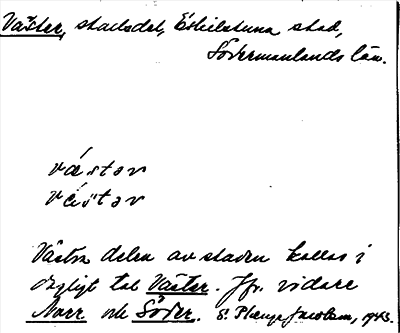 Väster, stadsdel, Eskilstuna stad,
Södermanlands län.
västər
västər
Västra delen av staden kallas i
dagligt tal Väster. Jfr. vidare
Norr och Söder. S. Jacobsson, 1943.